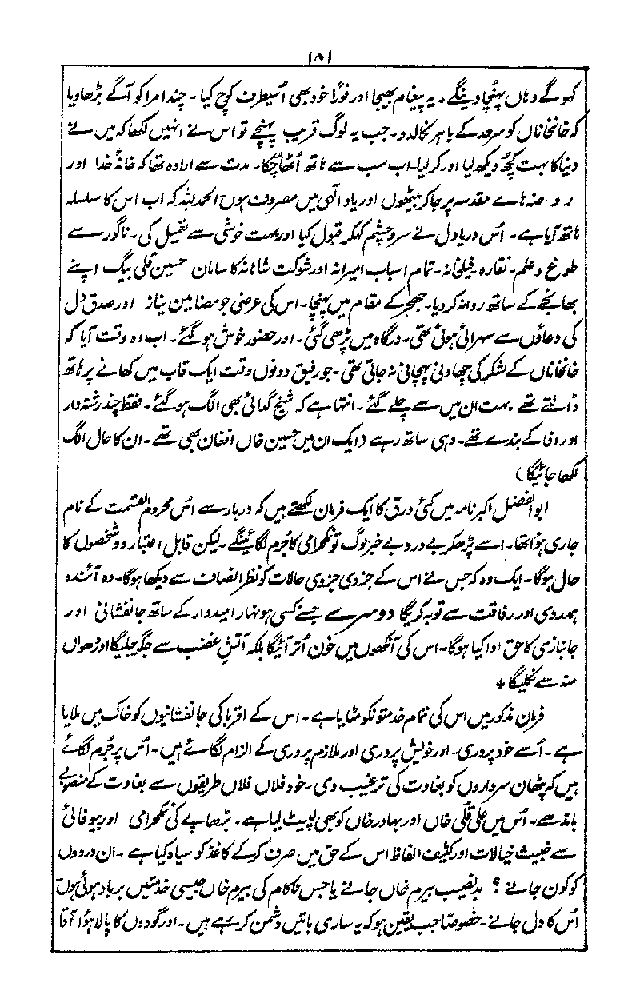 ۱۸۱
کو گے وہاں پہنچا دینگے۔ یہ پیغام بھیجا اور فوراً خود بھی اُسیطرف کوچ کیا۔ چند امرا کو آگے بڑھا دیا
کہ خانخاناں کو سرحد کے باہر نکالدو۔ جب یہ لوگ قریب پہنچے تو اس نے انہیں لکھا کہ میں نے
دنیا کا بہت کچھ دیکھ لیا اور کر لیا۔ اب سب سے ہاتھ اُٹھا چکا۔ مدت سے ارادہ تھا کہ خانۂ خدا اور
روضہ ہاے مقدسہ پر جا کر بیٹھوں اور یادِ الٰہی میں مصروف ہوں الحمدللہ کہ اب اس کا سلسلہ
ہاتھ آیا ہے۔ اُس دریا دل نے سر و چشم کہکر قبول کیا اور بہت خوشی سے تعمیل کی۔ ناگور سے
طوغ و علم۔ نقارہ۔ فیلخانہ۔ تمام اسباب امیرانہ اور شوکت شاہانہ کا سامان حسین قلی بیگ اپنے
بھانجے کے ساتھ روانہ کر دیا۔ جھجر کے مقام میں پہنچا۔ اس کی عرضی جو مضامین نیاز اور صدق دل
کی دعاؤں سے سہرائی ہوئی تھی۔ درگاہ میں پڑھی گئی۔ اور حضور خوش ہو گئے۔ اب وہ وقت آیا کہ
خانخاناں کے لشکر کی چھاونی پہچانی نہ جاتی تھی۔ جو رفیق دونوں وقت ایک قاب میں کھانے پر ہاتھ
ڈالتے تھے بہت ان میں سے چلے گئے۔ انتہا ہے کہ شیخ گدائی بھی الگ ہو گئے۔ فقط چند رشتہ دار
اور وفا کے بندے تھے۔ وہی ساتھ رہے (ایک ان میں حسین خاں افغان بھی تھے۔ ان کا حال الگ
لکھا جائیگا)
ابوالفضل اکبر نامہ میں کئی ورق کا ایک فرمان لکھتے ہیں کہ دربار سے اُس محروم القسمت کے نام
جاری ہوا تھا۔ اسے پڑھکر بے درد بے خبر لوگ تو نمکحرامی کا جُرم لگائینگے۔ لیکن قابل اعتبار دو شخصوں کا
حال ہوگا۔ ایک وہ کہ جس نے اس کے جزوی جزوی حالات کو نظر انصاف سے دیکھا ہوگا۔ وہ آئندہ
ہمدردی اور رفاقت سے توبہ کریگا دوسرے جسنے کسی ہونہار امیدوار کے ساتھ جانفشانی اور
جانبازی کا حق ادا کیا ہوگا۔ اس کی آنکھوں میں خون اُتر آئیگا بلکہ آتش غضب سے جگر جلیگا اور دھواں
منہ سے نکلیگا *
فرمان مذکور میں اس کی تمام خدمتونکو مٹایا ہے۔ اس کے اقربا کی جانفشانیوں کو خاک میں ملایا
ہے۔ اُسے خود پروری۔ اور خویش پروری اور ملازم پروری کے الزام لگائے ہیں۔ اُس پر جُرم لگائے
ہیں کہ پٹھان سرداروں کو بغاوت کی ترغیب دی۔ خود فلاں فلاں طریقوں سے بغاوت کے منصوبے
باندھے۔ اُس میں علی قلی خاں اور بہادر خاں کو بھی لپیٹ لیا ہے۔ بڑھاپے کی نمکحرامی اور بیوفائی
سے خبیث خیالات اور کثیف الفاظ اس کے حق میں صرف کر کے کاغذ کو سیاہ کیا ہے۔ ان دردوں
کو کون جانے؟ بدنصیب بیرم خاں جانے یا جس ناکام کی بیرم خاں جیسی خدمتیں برباد ہوئی ہوں
اُس کا دل جانے۔ خصوصاً جب یقین ہو کہ یہ ساری باتیں دشمن کر رہے ہیں۔ اور گودوں کا پالا ہوا آقا